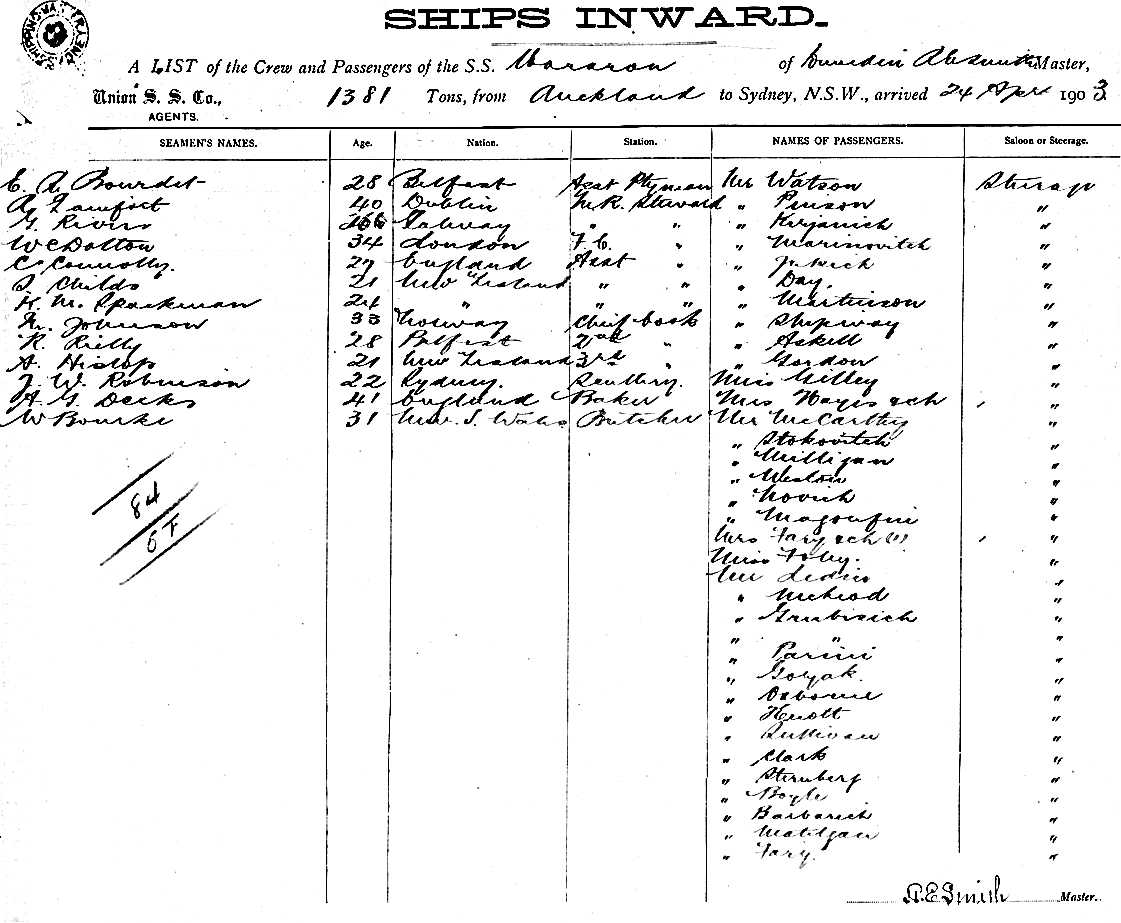 SHIPS INWARD.
A LIST of the Crew and Passengers of the S.S. of Dunedin Master,
Union S. S. Co., 1381 Tons, from Auckland to Sydney, N.S.W., arrived 24 Apr 1903
AGENTS.
SEAMEN'S NAMES. Age. Nation. Station. NAMES OF PASSENGERS. Saloon or Steerage.
E. A. Bourdet 28 Belfast Asst Mr Watson Steerage
40 Dublin Steward " "
G. Rivers Galway " " " "
W C Dalton 34 London F. C. " " Marinovitch "
C. Connolly. 27 England Asst " " "
S. Childs 21 New Zealand " " " Day. "
H. M. Sparkman 24 " " " " Martinson "
Johnson 33 Norway Chief Cook " Shipway "
R. Rielly 28 Belfast 2nd " " Askell "
A. Hislop 21 New Zealand 3rd " " Gordon "
J. W. Robinson 22 Sydney. Scullery. Miss Gilley "
A. G. Deeks 41 England Baker Mrs Hayes & ch "
W Bourke 31 New S. Wales Butcher Mr McCarthy "
" Stokovitch "
" Milligan "
" Weston "
" Novich "
" "
84
Mrs Fary & ch (1) "
OF
Miss Foley. "
Mr "
" McLeod "
" Grubisich "
" " "
" Parini "
" Golyak. "
" Osborne "
" Knott "
" Sullivan "
" Clark "
" Sternberg "
" Boyle "
" Barbarich "
" "
" Fary. "
A. E. Smith Master.